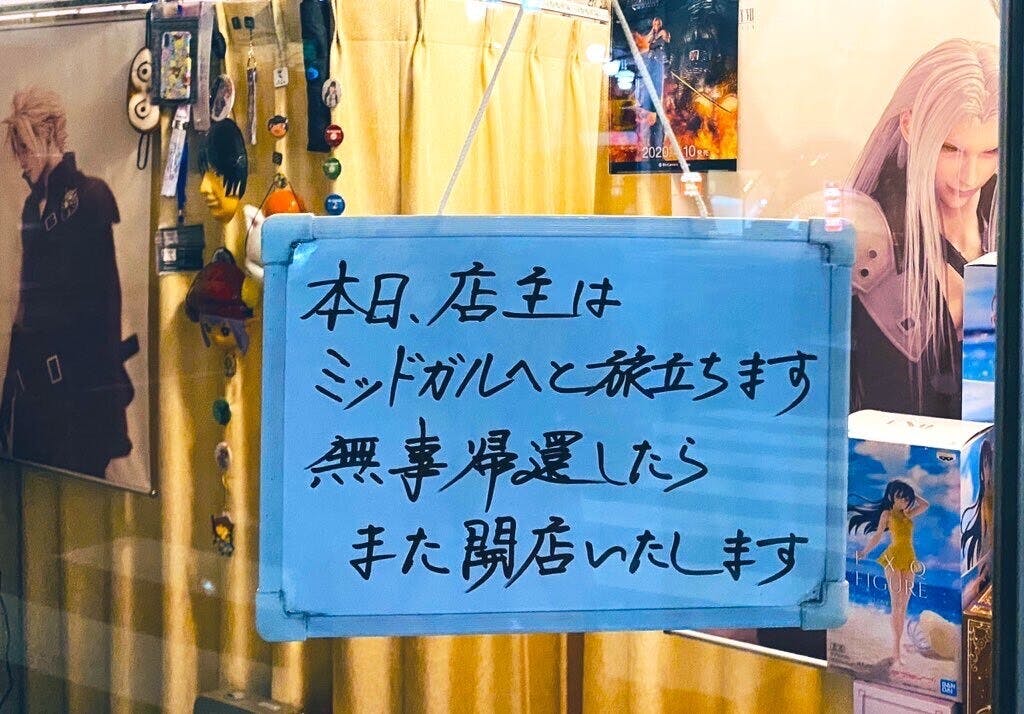 本日、店主は
ミッドガルへと旅立ちます
無事帰還したら
また開店いたします
EXQ
FIGURE
BAN
DAI